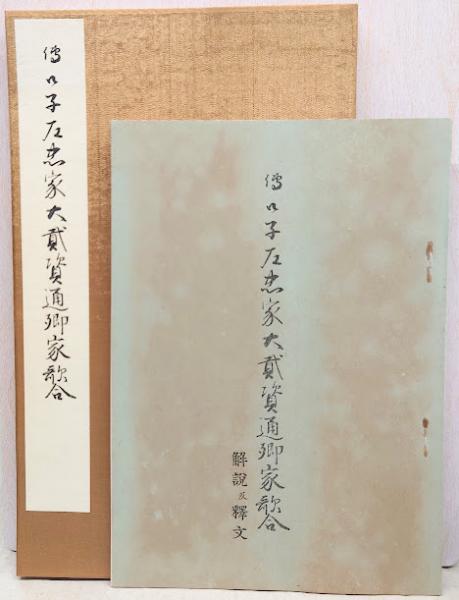 傳御子左忠家大貳資通卿家歌合
傳御子左忠家大貳資通卿家歌合
解說及釋文